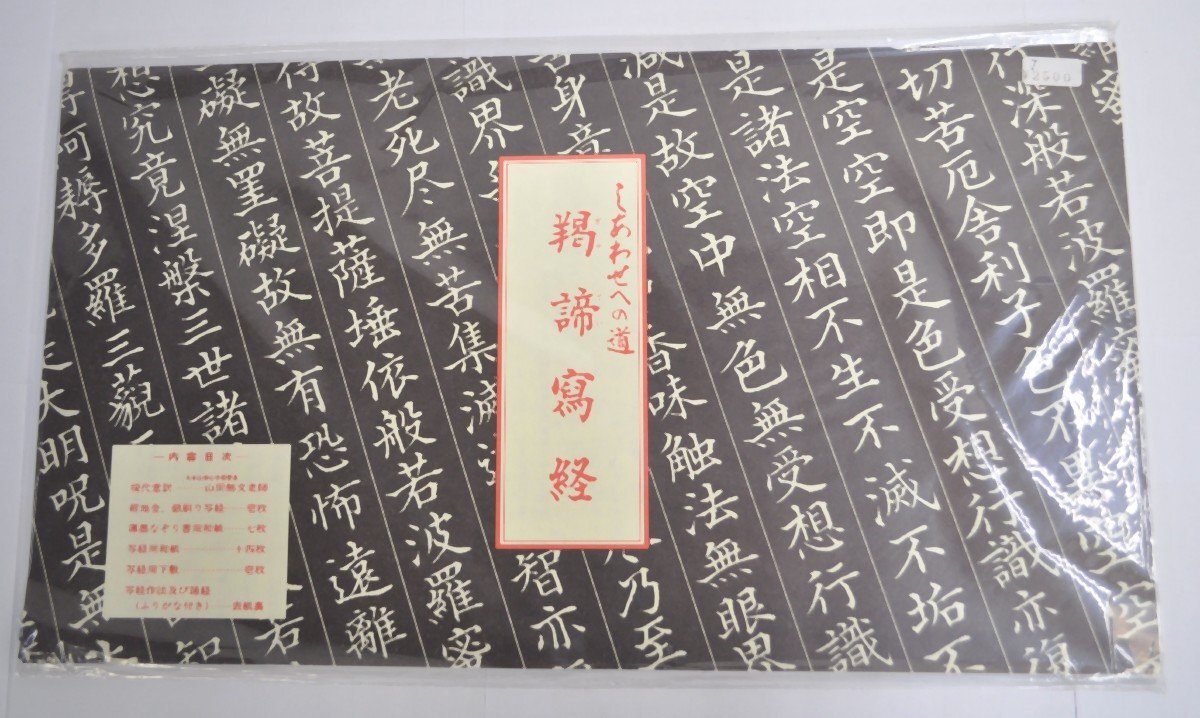 蜜
行深般若波羅蜜
切苦厄舎利子色不異空空
是空空即是色受想行識亦復
是諸法空相不生不滅不垢不
減是故空中無色無受想行識
舌身意
香味触法無眼界
識界無
乃至
老死尽無苦集滅
智亦
得故菩提薩埵依般若波羅蜜
礙無罣礙故無有恐怖遠離
想究竟涅槃三世諸
得阿耨多羅三藐
知
大明呪是無
2500
しあわせへの道
羯諦寫経
内容目次
現代意訳……山田無文老師
紺地金、銀刷り写経……壱枚
薄墨なぞり書用和紙……七枚
写経用和紙……十四枚
写経用下敷……壱枚
写経作法及び誦経
(ふりがな付き)……表紙裏